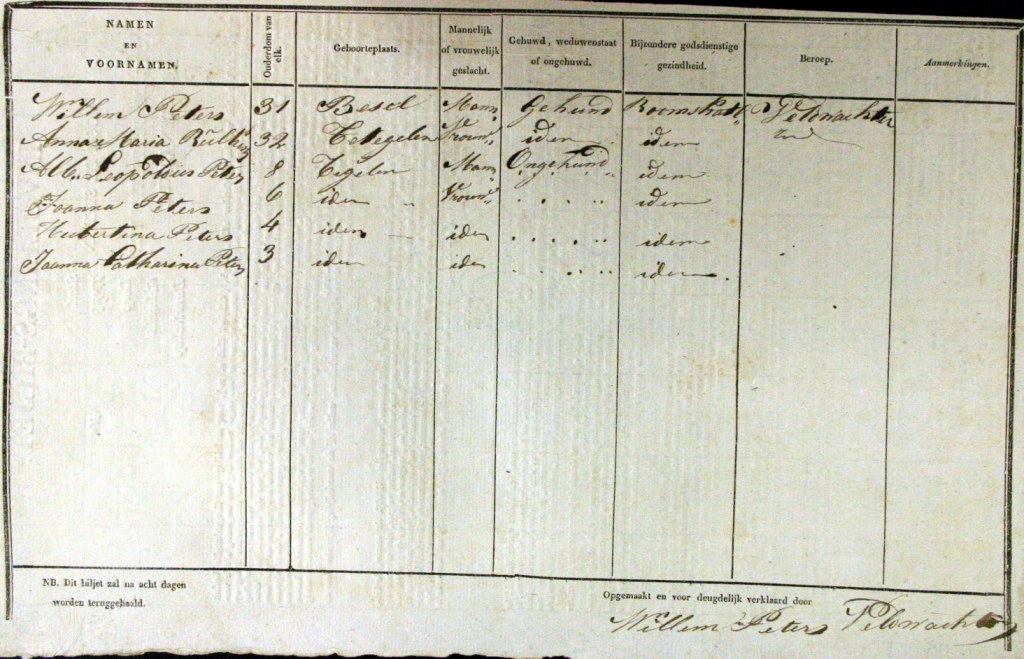 NAMEN EN VOORNAMEN. Ouderdom van elk. Geboorteplaats. Mannelijk of vrouwelijk geslacht. Gehuwd, weduwenstaat of ongehuwd. Bijzondere godsdienstige gezindheid. Beroep. Aanmerkingen.
Willem Peters 31 Besel Mann Gehuwd Roomskath. Veldwachter
Anna Maria 32 Tegelen Vrouw idem idem
Alb. Leopoldus Peters 8 Tegelen Mann Ongehuwd idem
Joanna Peters 6 idem „ Vrouw . . . . . idem
Hubertina Peters 4 idem iden . . . . . idem
Joanna Catharina Peters 3 idem iden . . . . . idem.
NB. Dit biljet zal na acht dagen
worden teruggehaald.
Opgemaakt en voor deugdelijk verklaard door
Willem Peters Veldwachter